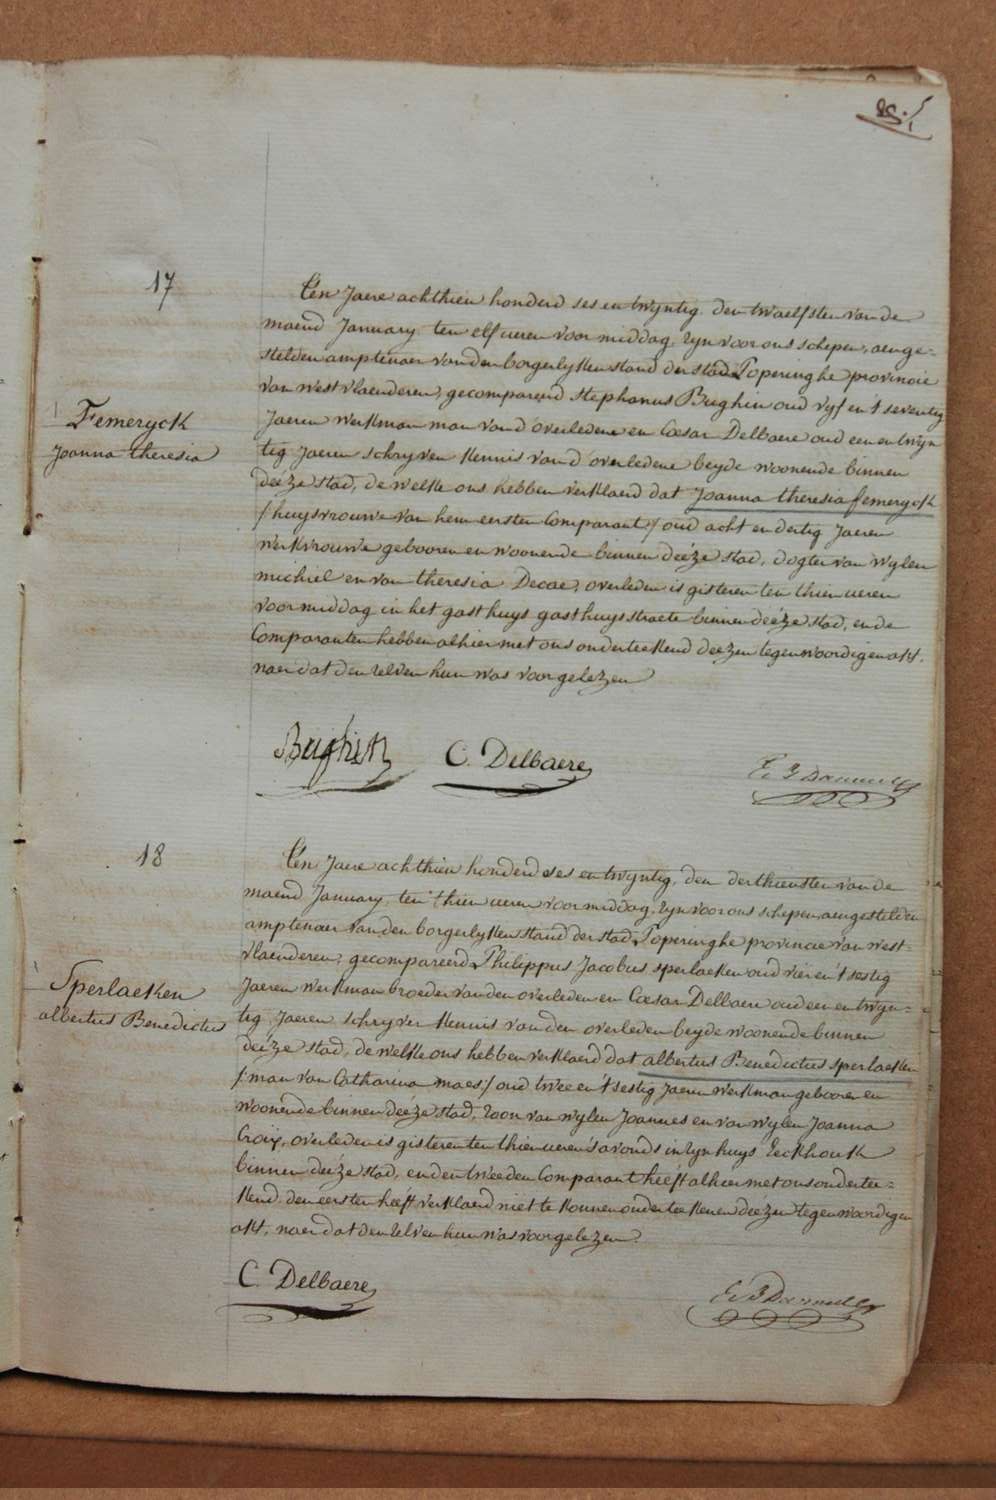 17
Femeryck
Joanna theresia
Ten Jaere achthien honderd ses en twyntig, den twaelfsten van de
maend January ten elf ueren voor middag, zyn voor ons schepen, aenge-
stelden amptenaer van den borgerlyken stand der stad Poperinghe provincie
van westvlaenderen, gecompareerd Stephanus Beghin oud vyf en 't seventig
Jaeren werkman man van d'overledene en Cæsar Delbaere oud een en twyn
tig Jaeren schryver kennis van d'overledene beyde woonende binnen
deéze stad, de welke ons hebben verklaerd dat Joanna theresia femeryck
/huysvrouwe van hem eersten Comparant/ oud acht en dertig Jaeren
werkvrouwe gebooren en woonende binnen deéze stad, dogter van wylen
michiel en van theresia Decae, overleden is gisteren ten thien ueren
voormiddag in het gasthuys gasthuysstraete binnen deéze stad, en de
Comparanten hebben alhier met ons onderteekend deezen tegenwoordigen akt,
naer dat den zelven hun was voorgelezen
Beghin C. Delbaere
18
Sperlaeken
albertus Benedictus
Ten Jaere achthien honderd ses en twyntig, den derthiensten van de
maend January ten thien ueren voormiddag, zyn voor ons schepen, aengestelden
amptenaer van den borgerlyken stand der stad Poperinghe provincie van west-
vlaenderen, gecompareerd Philippus Jacobus sperlaeken oud vier en 't sestig
Jaeren werkman broeder van den overleden en Cæsar Delbaere oud een en twyn-
tig Jaeren schryver kennis van den overleden beyde woonende binnen
deéze stad, de welke ons hebben verklaerd dat albertus Benedictus sperlaeken
/man van Catharina maes/ oud twee en 't sestig Jaeren werkman gebooren en
woonende binnen deéze stad, zoon van wylen Joannes en van wylen Joanna
Croix, overleden is gisteren ten thien ueren 's avonds in zyn huys Eeckhoutk
binnen deéze stad, en den tweeden Comparant heéft alhier met ons ondertee-
kend, den eersten heeft verklaerd niet te konnen onderteekenen deézen tegenwoordigen
akt, naer dat den zelven hun was voorgelezen.
C. Delbaere